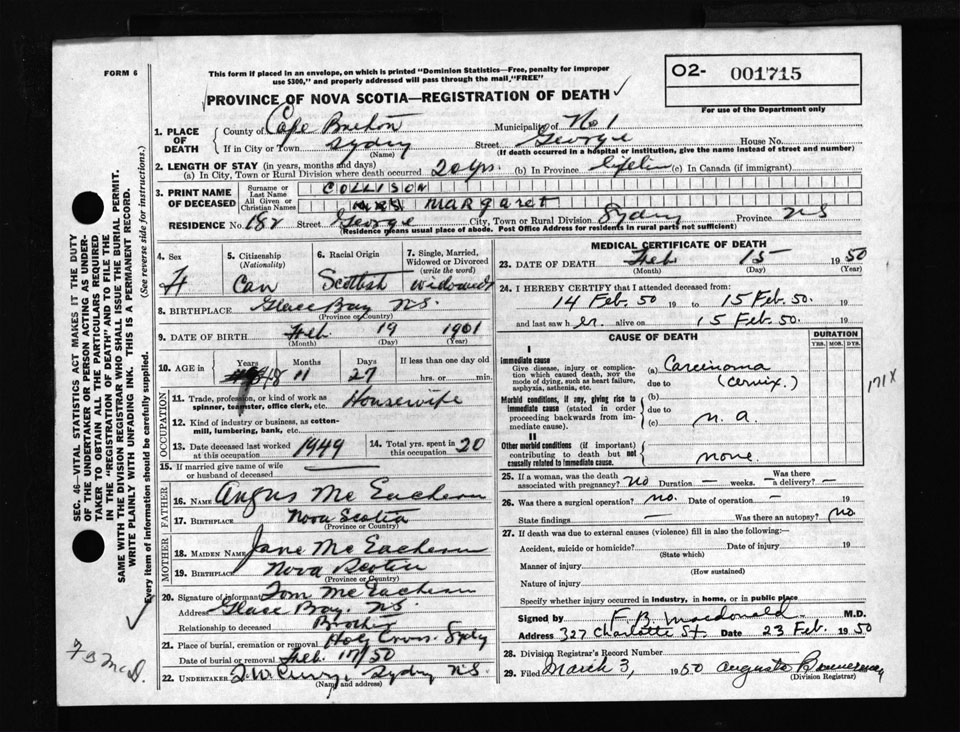 FORM 6
This form if placed in an envelope, on which is printed "Dominion Statistics—Free, penalty for improper
use $300," and properly addressed will pass through the mail, "FREE"
PROVINCE OF NOVA SCOTIA—REGISTRATION OF DEATH
O2- 001715
For use of the Department only
1. PLACE OF DEATH County of Cape Breton Municipality of No 1
If in City or Town Sydney (Name) Street George House No.
(If death occurred in a hospital or institution, give the name instead of street and number)
2. LENGTH OF STAY (in years, months and days)
(a) In City, Town or Rural Division where death occurred 20 yrs. (b) In Province lifetime (c) In Canada (if immigrant)
3. PRINT NAME OF DECEASED Surname or Last Name COLLISON
All Given or Christian Names MRS MARGARET
RESIDENCE No. 182 Street George City, Town or Rural Division Sydney Province NS
(Residence means usual place of abode. Post Office Address for residents in rural parts not sufficient)
4. Sex F
5. Citizenship (Nationality) Can
6. Racial Origin Scottish
7. Single, Married, Widowed or Divorced (write the word) Widowed
8. BIRTHPLACE Glace Bay NS. (Province or Country)
9. DATE OF BIRTH Feb 19 1901
(Month) (Day) (Year)
10. AGE in Years 48 Months 11 Days 27 If less than one day old hrs. or min.
OCCUPATION
11. Trade, profession, or kind of work as spinner, teamster, office clerk, etc. Housewife
12. Kind of industry or business, as cotton-mill, lumbering, bank, etc.
13. Date deceased last worked at this occupation 1949 14. Total yrs. spent in this occupation 20
15. If married give name of wife or husband of deceased
FATHER
16. NAME Angus McEachern
17. BIRTHPLACE Nova Scotia (Province or Country)
MOTHER
18. MAIDEN NAME Jane McEachern
19. BIRTHPLACE Nova Scotia (Province or Country)
20. Signature of informant Tom McEachern
Address Glace Bay. NS.
Relationship to deceased Brother
21. Place of burial, cremation or removal Holy Cross. Sydney
Date of burial or removal Feb. 17/50
22. UNDERTAKER Sydney NS.
(Name and address)
MEDICAL CERTIFICATE OF DEATH
23. DATE OF DEATH Feb. 15 1950
(Month) (Day) (Year)
24. I HEREBY CERTIFY that I attended deceased from:
14 Feb. 50 19 to 15 Feb. 50. 19
and last saw her. alive on 15 Feb. 50. 19
CAUSE OF DEATH
DURATION
YRS. MOS. DYS.
I
Immediate cause
Give disease, injury or complication which caused death, not the mode of dying, such as heart failure, asphyxia, asthenia, etc.
(a) Carcinoma
due to (cervix.)
171X
Morbid conditions, if any, giving rise to immediate cause (stated in order proceeding backwards from immediate cause).
(b)
due to
(c) n.a.
II
Other morbid conditions (if important) contributing to death but not causally related to immediate cause.
none.
25. If a woman, was the death associated with pregnancy? no Duration — weeks. Was there a delivery? —
26. Was there a surgical operation? no. Date of operation — 19
State findings — Was there an autopsy? no
27. If death was due to external causes (violence) fill in also the following:—
Accident, suicide or homicide? Date of injury 19
(State which)
Manner of injury
(How sustained)
Nature of injury
Specify whether injury occurred in industry, in home, or in public place
Signed by F. B. Macdonald M.D.
Address 327 Charlotte St. Date 23 Feb. 1950
28. Division Registrar's Record Number
29. Filed March 3, 1950
(Division Registrar)
SEC. 46—VITAL STATISTICS ACT MAKES IT THE DUTY
OF THE UNDERTAKER OR PERSON ACTING AS UNDER-
TAKER TO OBTAIN ALL THE PARTICULARS REQUIRED
IN THE "REGISTRATION OF DEATH" AND TO FILE THE
SAME WITH THE DIVISION REGISTRAR WHO SHALL ISSUE THE BURIAL PERMIT.
WRITE PLAINLY WITH UNFADING INK. THIS IS A PERMANENT RECORD.
Every item of information should be carefully supplied. (See reverse side for instructions.)
F B McD.